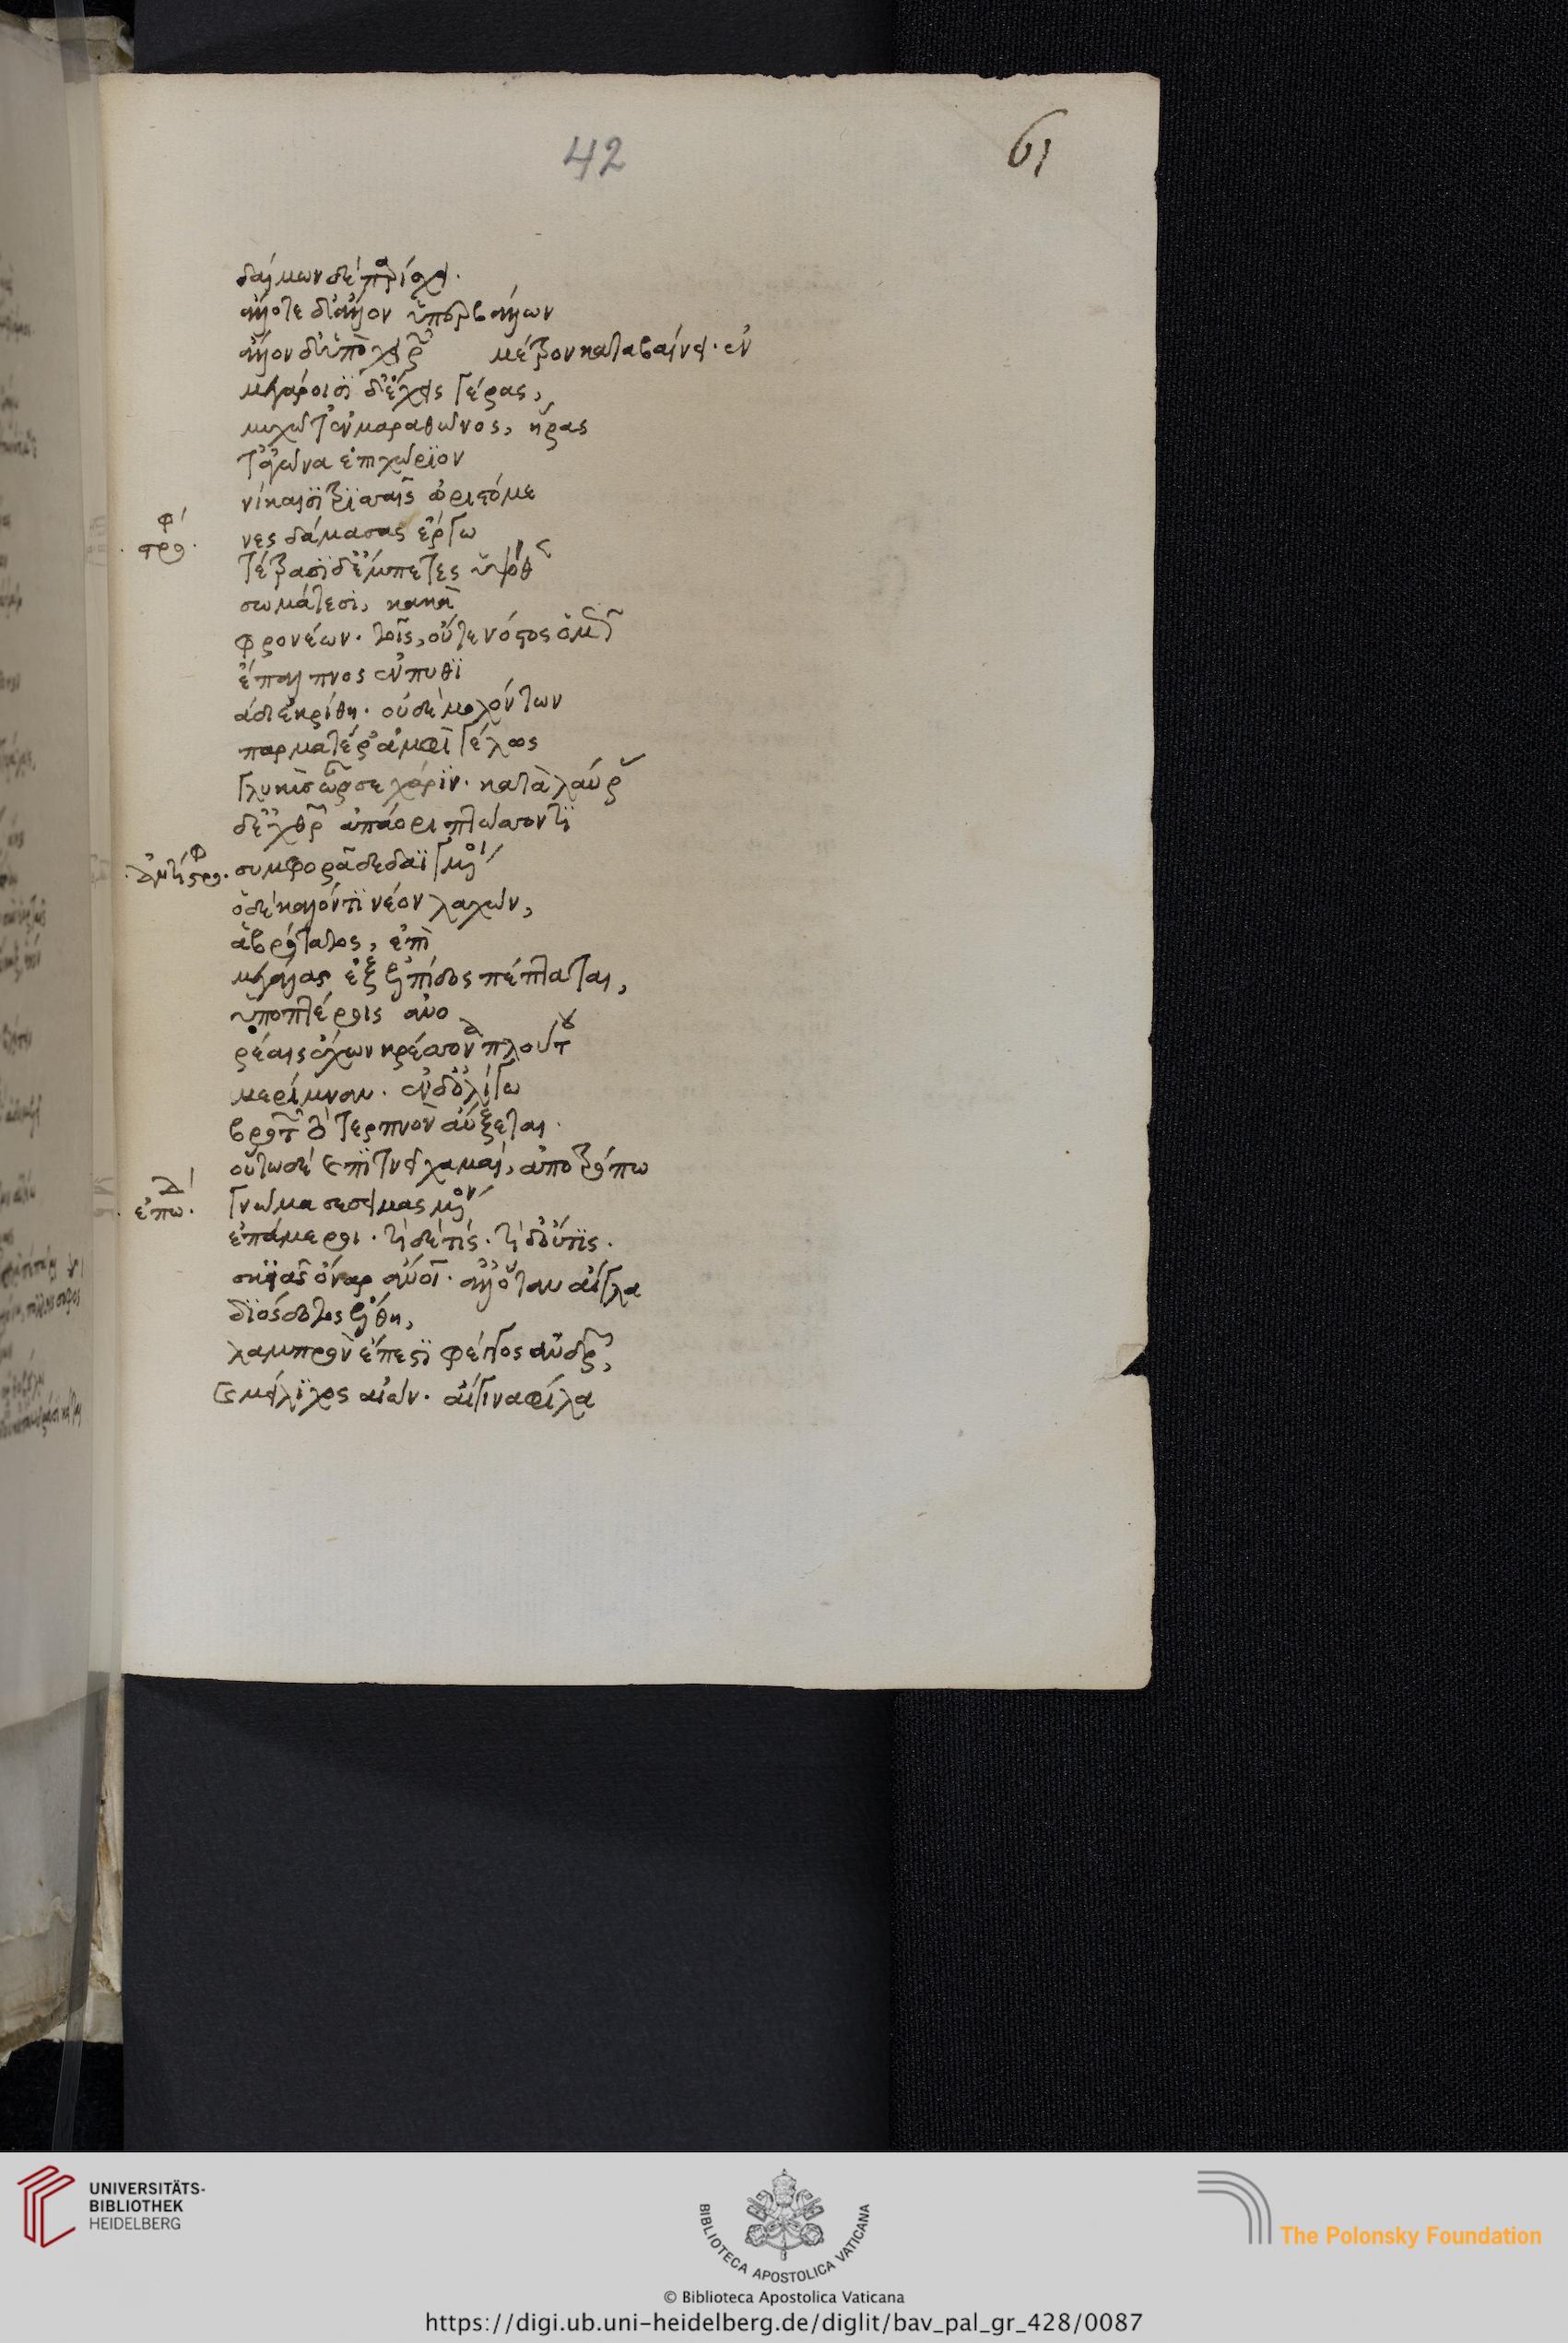 42
61
δαίμων δὲ παρίσχει·
ἄλλοτε δ' ἄλλον ὕπερ βάλλων
ἄλλον δ' ὑπὸ χειρῶν μέτρον καταβαίνει· ἐν
μεγάροισι δ' ἔχεις γέρας,
μυχῶ τ' ἐν μαραθῶνος, ἥρας
τ' ἀγῶνα ἐπιχώριον
νίκαισι τρισσαῖς ὠριστόμε
στρο. νες δάμασσας ἔργω
τέτρασι δ' ἔμπετες ὑψόθεν
σωμάτεσι, κακὰ
φρονέων· τοῖς, οὔτε νόστος ὁμῶς
ἔπαλπνος ἐν πυθι
άδι ἐκρίθη· οὐδὲ μολόντων
παρ ματέρ' ἀμφὶ γέλως
γλυκὺς ὦρσε χάριν· κατὰ λαύρας
δ' ἐχθρῶν ἀπάοροι πτώσσοντι
ἀντιστρο. συμφορᾶ δεδαϊγμένοι
ὁ δὲ καλόν τι νέον λαχὼν,
ἁβρότατος, ἐπὶ
μεγάλας ἐξ ἐλπίδος πέπταται,
ὑποπτέροις ἀνο
ρέαις ἔχων κρέσσονα πλούτου
μερίμναν· ἐν δ' ὀλίγω
βροτῶν τὸ τερπνὸν αὔξεται·
οὕτω δὲ καὶ πιτνεῖ χαμαὶ, ἀποτρόπω
ἐπω. γνώμα σεσεισμένον
ἐπάμεροι· τί δέ τίς· τί δ' οὔτις·
σκιᾶς ὄναρ ἄνθρωποι· ἀλλ' ὅταν αἴγλα
διόσδοτος ἔλθη,
λαμπρὸν ἔπεστι φέγγος ἀνδρῶν,
καὶ μείλιχος αἰών· αἴγινα φίλα
UNIVERSITÄTS-
BIBLIOTHEK
HEIDELBERG
BIBLIOTECA APOSTOLICA VATICANA
The Polonsky Foundation
© Biblioteca Apostolica Vaticana
https://digi.ub.uni-heidelberg.de/diglit/bav_pal_gr_428/0087